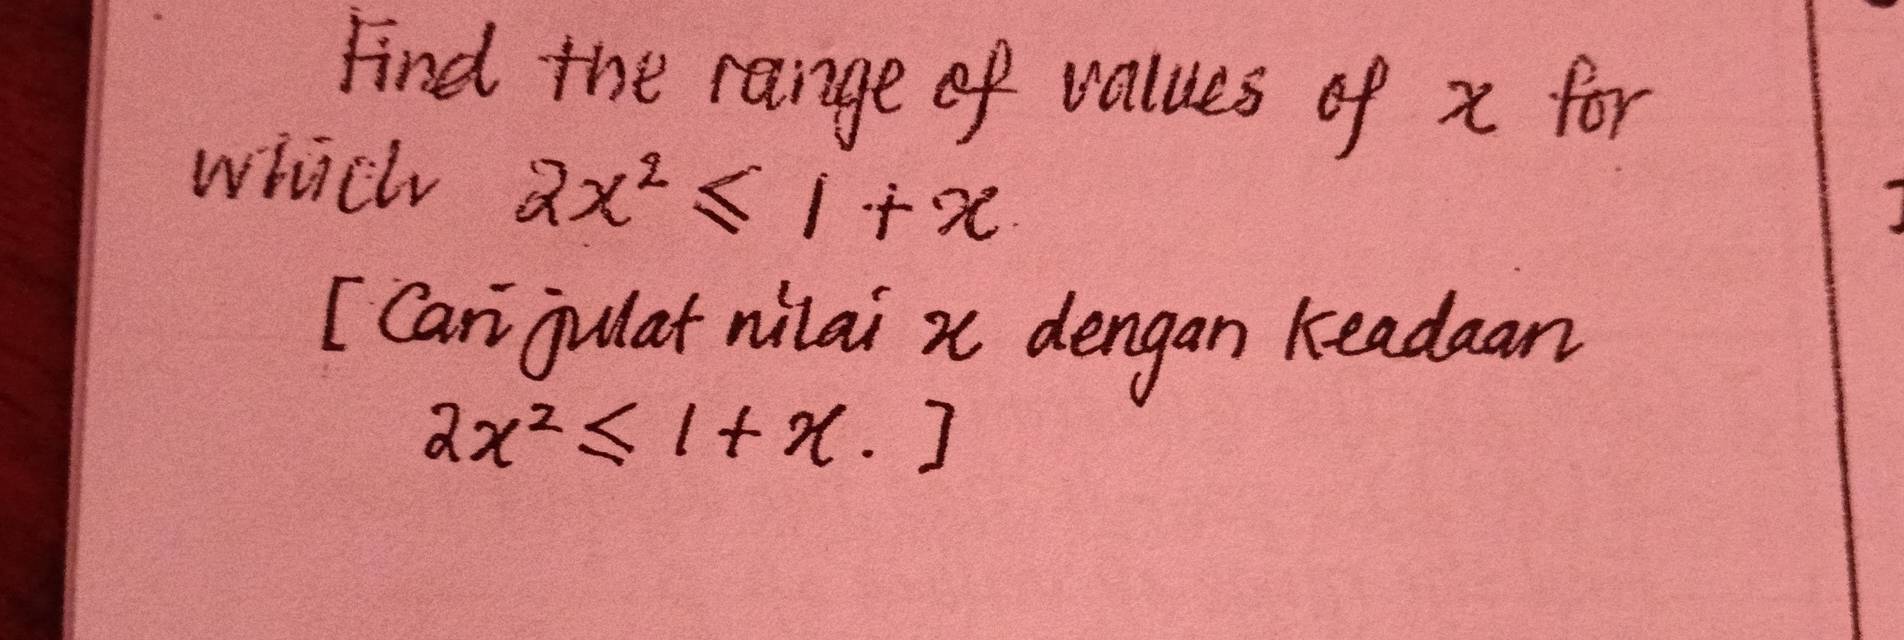 Find the range of values of x for
which 2x² ⩽ 1 + x.
[ Cari julat nilai x dengan keadaan
2x² ≤ 1 + x. ]